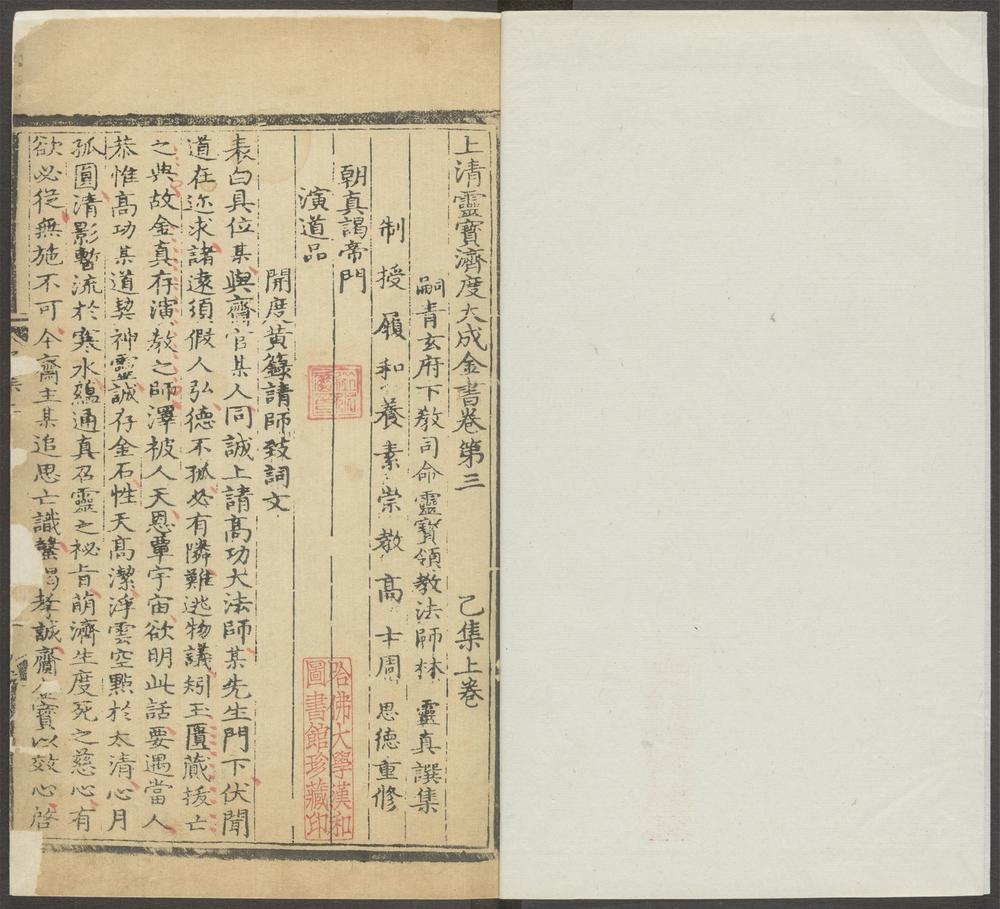 上清靈寶濟度大成金書卷第三 乙集上卷
嗣青玄府下教司命靈寶領教法師林 靈真譔集
制授履和養素崇教高士周 思德重修
朝真謁帝門
演道品
開度黃籙請師致詞文
表白具位某與齋官某人同誠上請高功大法師某先生門下伏聞
道在迩求諸遠須假人弘德不孤必有隣難逃物議矧玉匱藏拔亡
之典故金真存演教之師澤被人天恩覃宇宙欲明此話要遇當人
恭惟高功某道契神靈誠存金石性天高潔浮雲空點於太清心月
孤圓清影暫流於寒水蘊通真召靈之祕旨萌濟生度死之慈心有
欲必從無施不可今齋主某追思亡識 竭孝誠齎 寶以效心啓
哈佛大學漢和
圖書館珍藏印